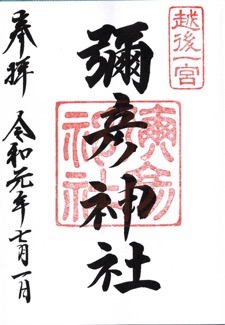 越後一宮
彌彦神社
彌彦神社
奉拝
令和元年七月一日